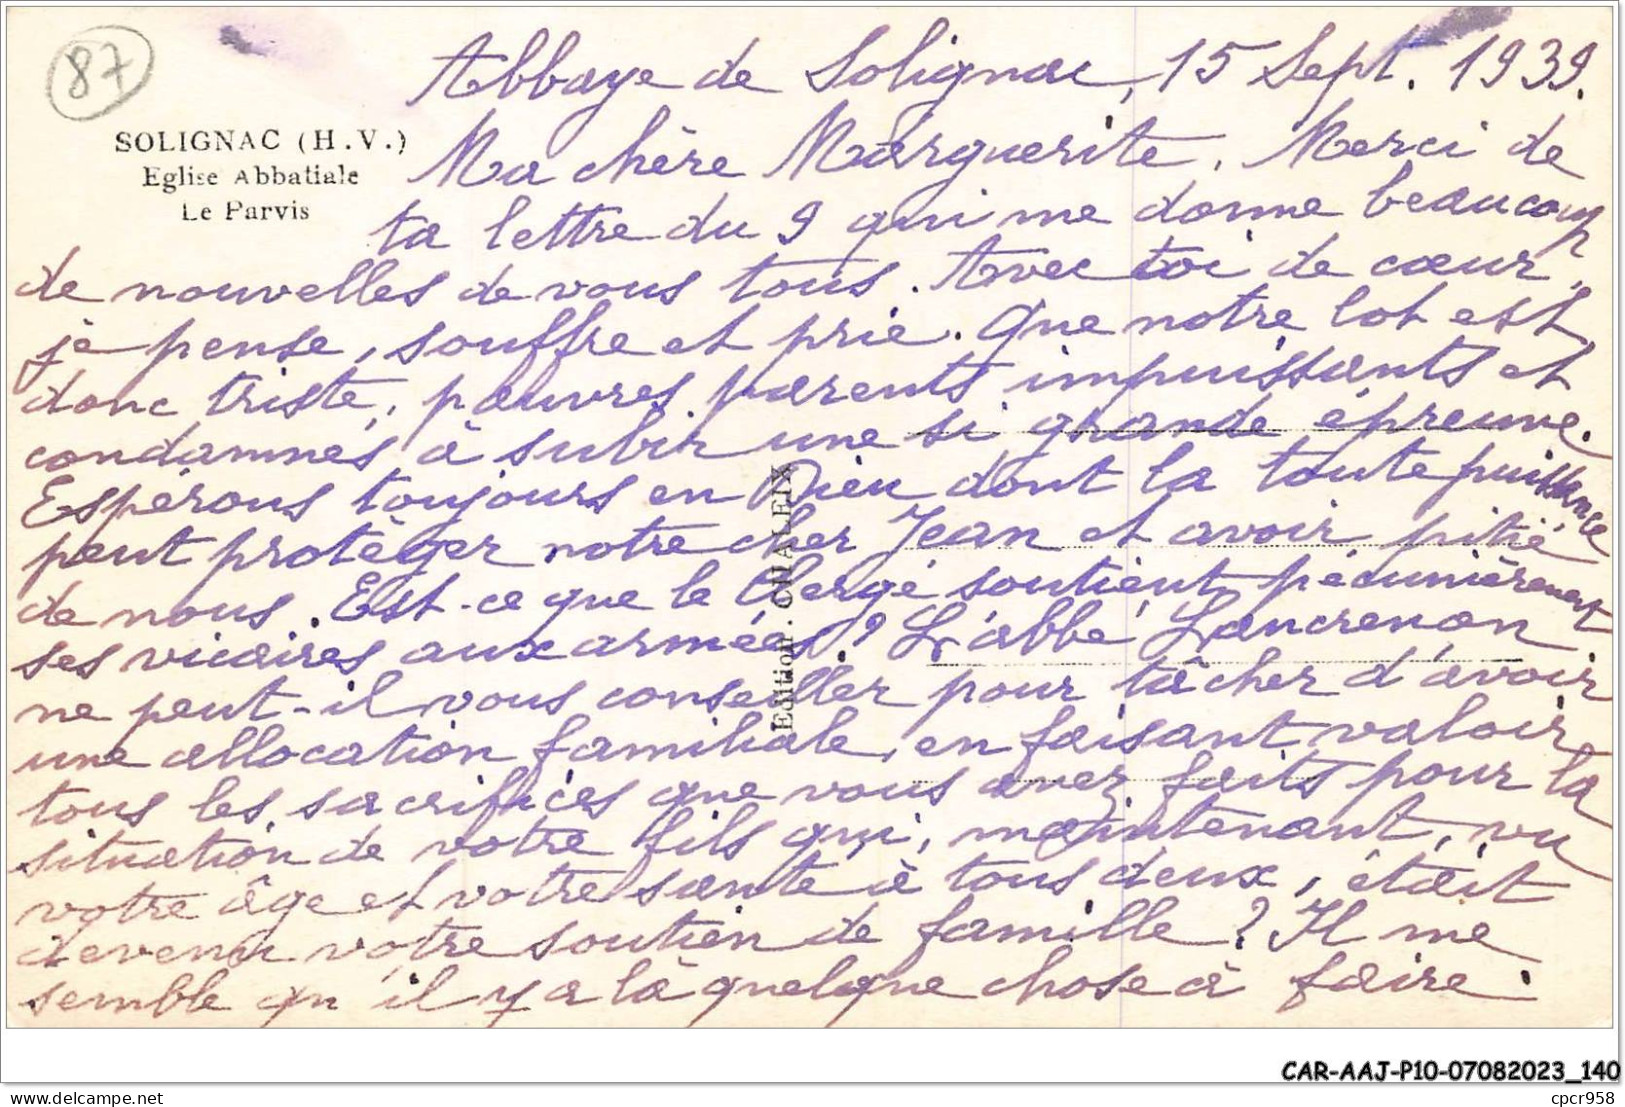 87
SOLIGNAC (H.V.)
Eglise Abbatiale
Le Parvis
Abbaye de Solignac, 15 Sept. 1939.
Ma chère Marguerite. Merci de
ta lettre du 9 qui me donne beaucoup
de nouvelles de vous tous. Avec toi de cœur,
je pense, souffre et prie. Que notre lot est
donc triste, pauvres parents impuissants et
condamnés à subir une si grande épreuve.
Espérons toujours en Dieu dont la toute puissance
peut protèger notre cher Jean et avoir pitié
de nous. Est-ce que le Clergé soutient pécunièrement
ses vicaires aux armées ? L'abbé Lancrenon
ne peut-il vous conseiller pour tâcher d'avoir
une allocation familiale, en faisant valoir
tous les sacrifices que vous avez faits pour la
situation de votre fils qui, maintenant, vu
votre âge et votre santé à tous deux, était
devenu votre soutien de famille ? Il me
semble qu'il y a là quelque chose à faire.
Edition. CHALEIX
CAR-AAJ-P10-07082023_140
www.delcampe.net
cpcr958